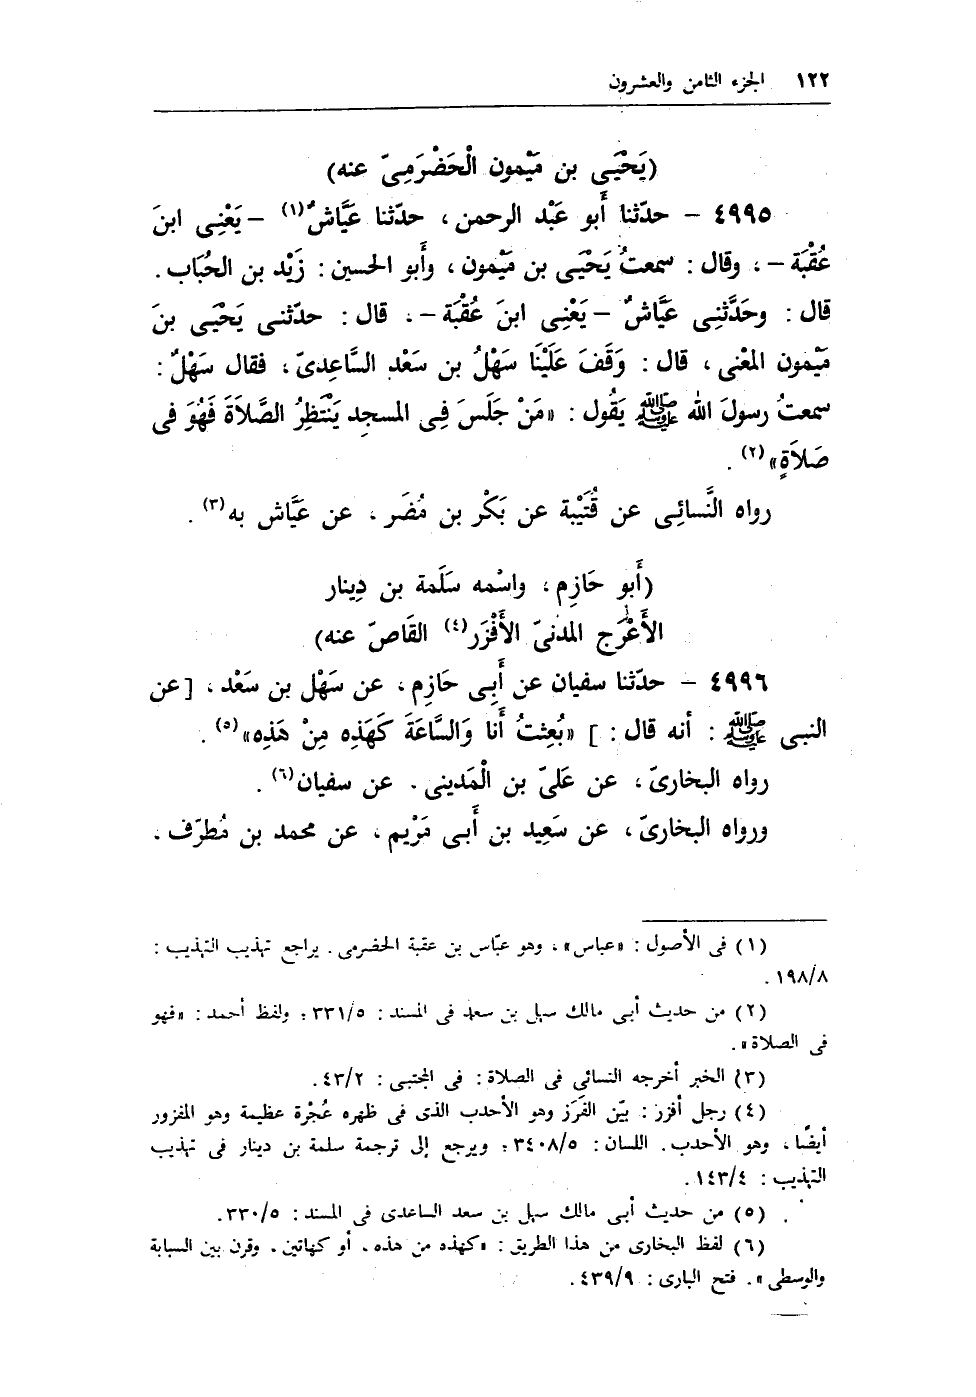 ١٢٢ الجزء الثامن والعشرون
(يَحْيَى بن مَيْمون الْحَضْرَمِىّ عنه)
٤٩٩٥ – حدّثنا أَبو عَبْد الرحمن ، حدّثنا عَيَّاشٌ(١) – يَعْنِى ابنَ
عُقْبَة – ، وقال : سمعتُ يَحْيَى بن مَيْمون ، وأَبو الحسين : زَيْد بن الحُبَاب .
قال : وحَدَّثَنِى عَيَّاشٌ – يَعْنِى ابنَ عُقْبَة – ، قال : حدّثنى يَحْيَى بن
مَيْمون المعْنى ، قال : وَقَفَ عَلَيْنَا سَهْلُ بن سَعْد السَّاعِدىّ ، فقال سَهْلٌ :
سمعتُ رسولَ الله ﷺ يَقُول : «مَنْ جَلَسَ فِى المسجد يَنْتَظِرُ الصَّلاَةَ فَهُوَ فى
صَلاَةٍ»(٢) .
رواه النَّسائِى عن قُتَيْبة عن بَكْر بن مُضَر ، عن عَيَّاش به(٣) .
(أَبو حَازِم ، واسْمه سَلَمة بن دِينار
الأَعْرَج المدنىّ الأَفْزَر(٤) القَاصّ عنه)
٤٩٩٦ – حدّثنا سفيان عن أَبِى حَازِم ، عن سَهْل بن سَعْد ، [عن
النبى ﷺ : أنه قال : ] «بُعِثتُ أَنا وَالسَّاعَةَ كَهَذِه مِنْ هَذِه»(٥) .
رواه البخارىّ ، عن عَلىّ بن الْمَدينى . عن سفيان(٦) .
ورواه البخارىّ ، عن سَعِيد بن أَبى مَرْيم ، عن محمد بن مُطرّف ،
(١) فى الأصول : «عباس» ، وهو عيّاس بن عقبة الحضرمى . يراجع تهذيب التهذيب :
١٩٨/٨ .
(٢) من حديث أبى مالك سهل بن سعد فى المسند : ٣٣١/٥ ؛ ولفظ أحمد : «فهو
فى الصلاة» .
(٣) الخبر أخرجه النسائي فى الصلاة : فى المجتبى : ٤٣/٢ .
(٤) رجل أفزر : بيّن الفَزَر وهو الأحدب الذى فى ظهره عُجْرة عظيمة وهو المفزور
أيضًا ، وهو الأحدب . اللسان : ٣٤٠٨/٥ ؛ ويرجع إلى ترجمة سلمة بن دينار فى تهذيب
التهذيب : ١٤٣/٤ .
(٥) من حديث أبى مالك سهل بن سعد الساعدى فى المسند : ٣٣٠/٥ .
(٦) لفظ البخارى من هذا الطريق : «كهذه من هذه ، أو كهاتين . وقرن بين السبابة
والوسطى» . فتح البارى : ٤٣٩/٩ .